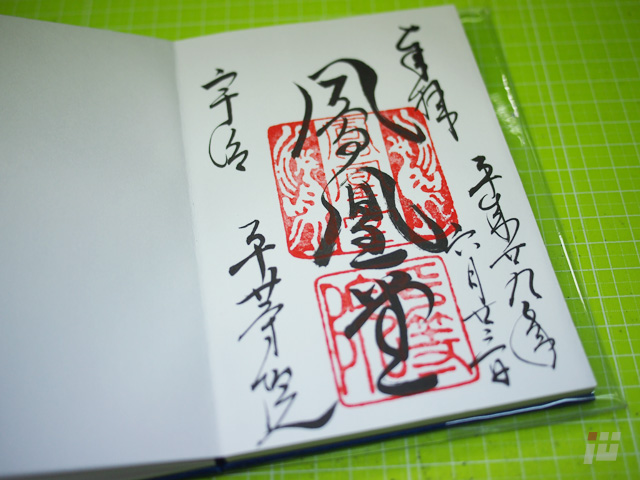 奉拝
平成廿九年
六月廿三日
鳳凰堂
宇治
平等院